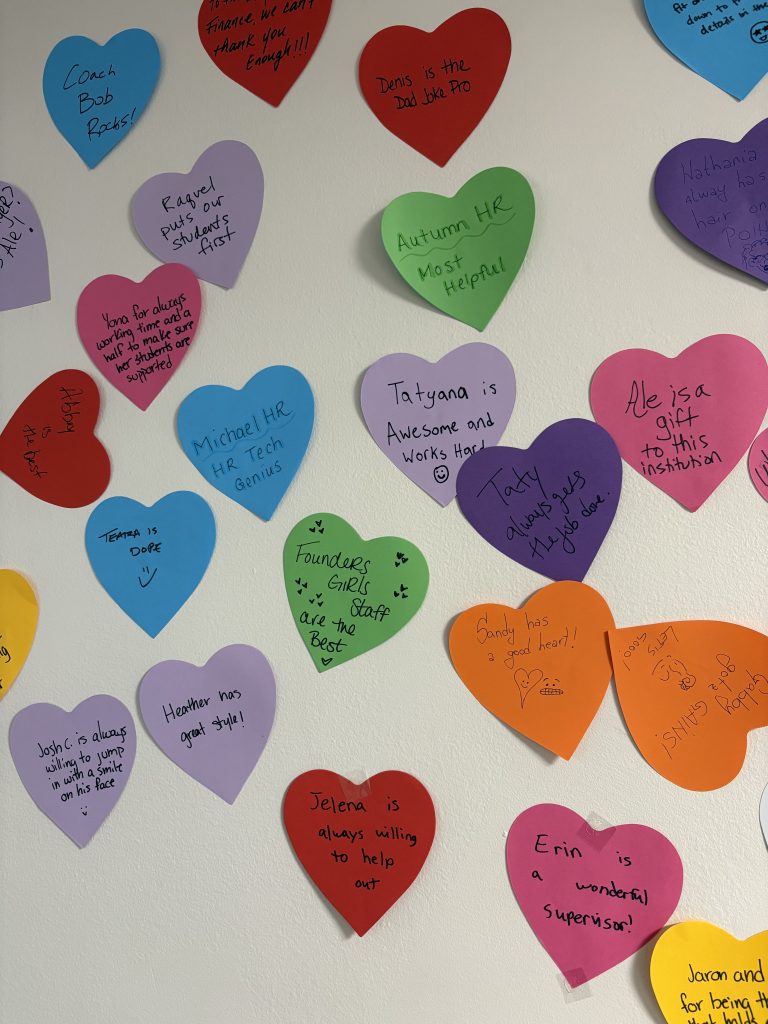 Finance, we can't
thank you
Enough!!!
Coach
Bob
Rocks!
Denis is the
Dad Joke Pro
down to
details in the
Raquel
puts our
students
first
Autumn HR
Most
Helpful
Nathania
Always has
hair on
Ale!
Yona for always
working time and a
half to make sure
her students are
supported
Abbey
is
the best
Michael HR
HR Tech
Genius
Tatyana is
Awesome and
works Hard
Ale is a
gift
to this
institution
Taty
always gets
the job done.
is
DOPE
Founders
GIRLS
Staff
are the
Best
Sandy has
a good heart!
LET'S
GOOO!
Gabby
got
GAINS!
Heather has
great style!
Josh C. is always
willing to jump
in with a smile
on his face
Jelena is
always willing
to help
out
Erin is
a wonderful
supervisor!
Jaron and
for being
that